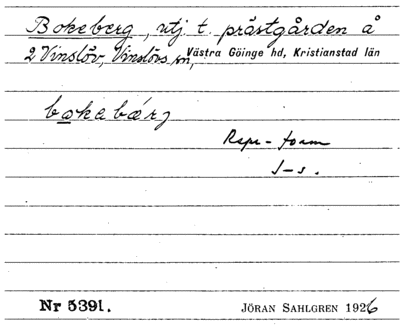 Bokeberg, utj t. prästgården å
2 Vinslöv, Vinslövs sn, Västra Göinge hd, Kristianstad län
bokabärj
Repr-form
J-s.
Nr 5391.
JÖRAN SAHLGREN 1926